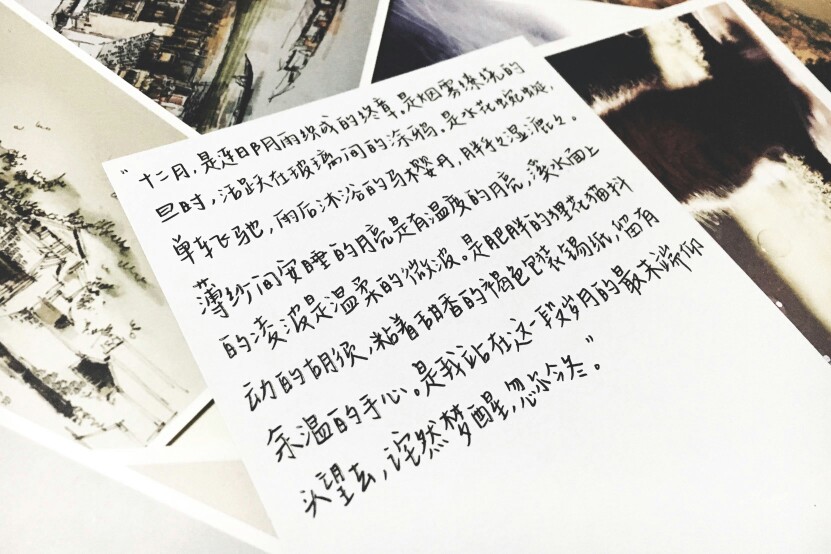 “十二月，是连日阴雨织成的终章。是烟雾缭绕的
旦时，活跃在玻璃间的涂鸦。是水花蜿蜒，
单车飞驰，雨后沐浴的马樱丹，胖手々湿漉々。
薄纱间安睡的月亮是有温度的月亮，溪水面上
的凌波是温柔的微波。是肥胖的狸花猫抖
动的胡须，粘着甜香的褐色包装锡纸，留有
余温的手心。是我站在这一段岁月的最末端仰
头望去，诧然梦醒，忽尔今冬。”